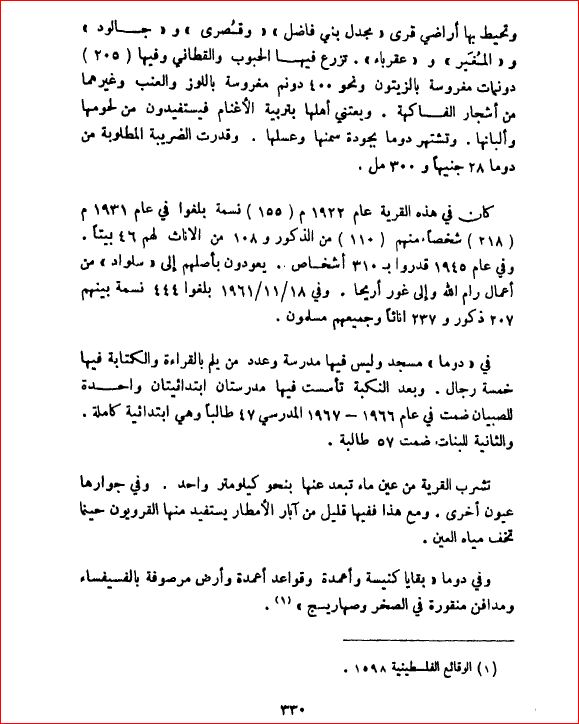 وتحيط بها أراضي قرى « مجدل بني فاضل » « وقنُصرى » و « جالود »
و « المُغَيّر » و « عقرباء ». تزرع فيها الحبوب والقطاني وفيها ( ٢٠٥ )
دونمات مغروسة بالزيتون ونحو ٤٠٠ دونم مغروسة باللوز والعنب وغيرهما
من أشجار الفاكهة . ويعتني أهلها بتربية الأغنام فيستفيدون من لحومها
وألبانها . وتشتهر دوما بجودة سمنها وعسلها . وقدرت الضريبة المطلوبة من
دوما ٢٨ جنيهاً و ٣٠٠ مل .
كان في هذه القرية عام ١٩٢٢ م ( ١٥٥ ) نسمة بلغوا في عام ١٩٣١ م
( ٢١٨ ) شخصاً،منهم ( ١١٠ ) من الذكور و ١٠٨ من الاناث لهم ٤٦ بيتاً .
وفي عام ١٩٤٥ قدروا بـ ٣١٠ أشخاص . يعودون بأصلهم إلى « سلواد » من
أعمال رام الله وإلى غور أريحا . وفي ١٩٦١/١١/١٨ بلغوا ٤٤٤ نسمة بينهم
٢٠٧ ذكور و ٢٣٧ اناثاً وجميعهم مسلمون .
في « دوما » مسجد وليس فيها مدرسة وعدد من يلم بالقراءة والكتابة فيها
خمسة رجال . وبعد النكبة تأسست فيها مدرستان ابتدائيتان واحدة
للصبيان ضمت في عام ١٩٦٦ – ١٩٦٧ المدرسي ٤٧ طالباً وهي ابتدائية كاملة .
والثانية للبنات ضمت ٥٧ طالبة .
تشرب القرية من عين ماء تبعد عنها بنحو كيلومتر واحد . وفي جوارها
عيون أخرى . ومع هذا ففيها قليل من آبار الأمطار يستفيد منها القرويون حينما
تخف مياه العين .
وفي دوما « بقايا كنيسة وأعمدة وقواعد أعمدة وأرض مرصوفة بالفسيفساء
ومدافن منقورة في الصخر وصهاريج » (١) .
(١) الوقائع الفلسطينية ١٥٩٨ .
٣٣٠